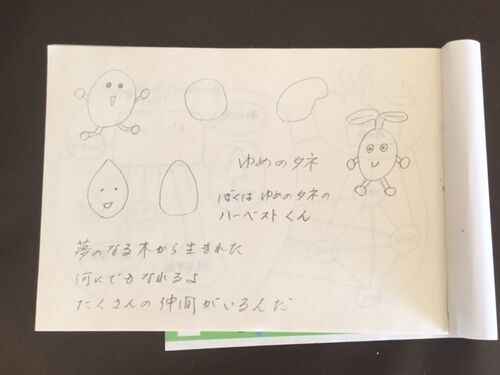 ゆめのタネ
ぼくは ゆめのタネの
ハーベストくん
夢のなる木から生まれた
何にでもなれるよ
たくさんの仲間がいるんだ